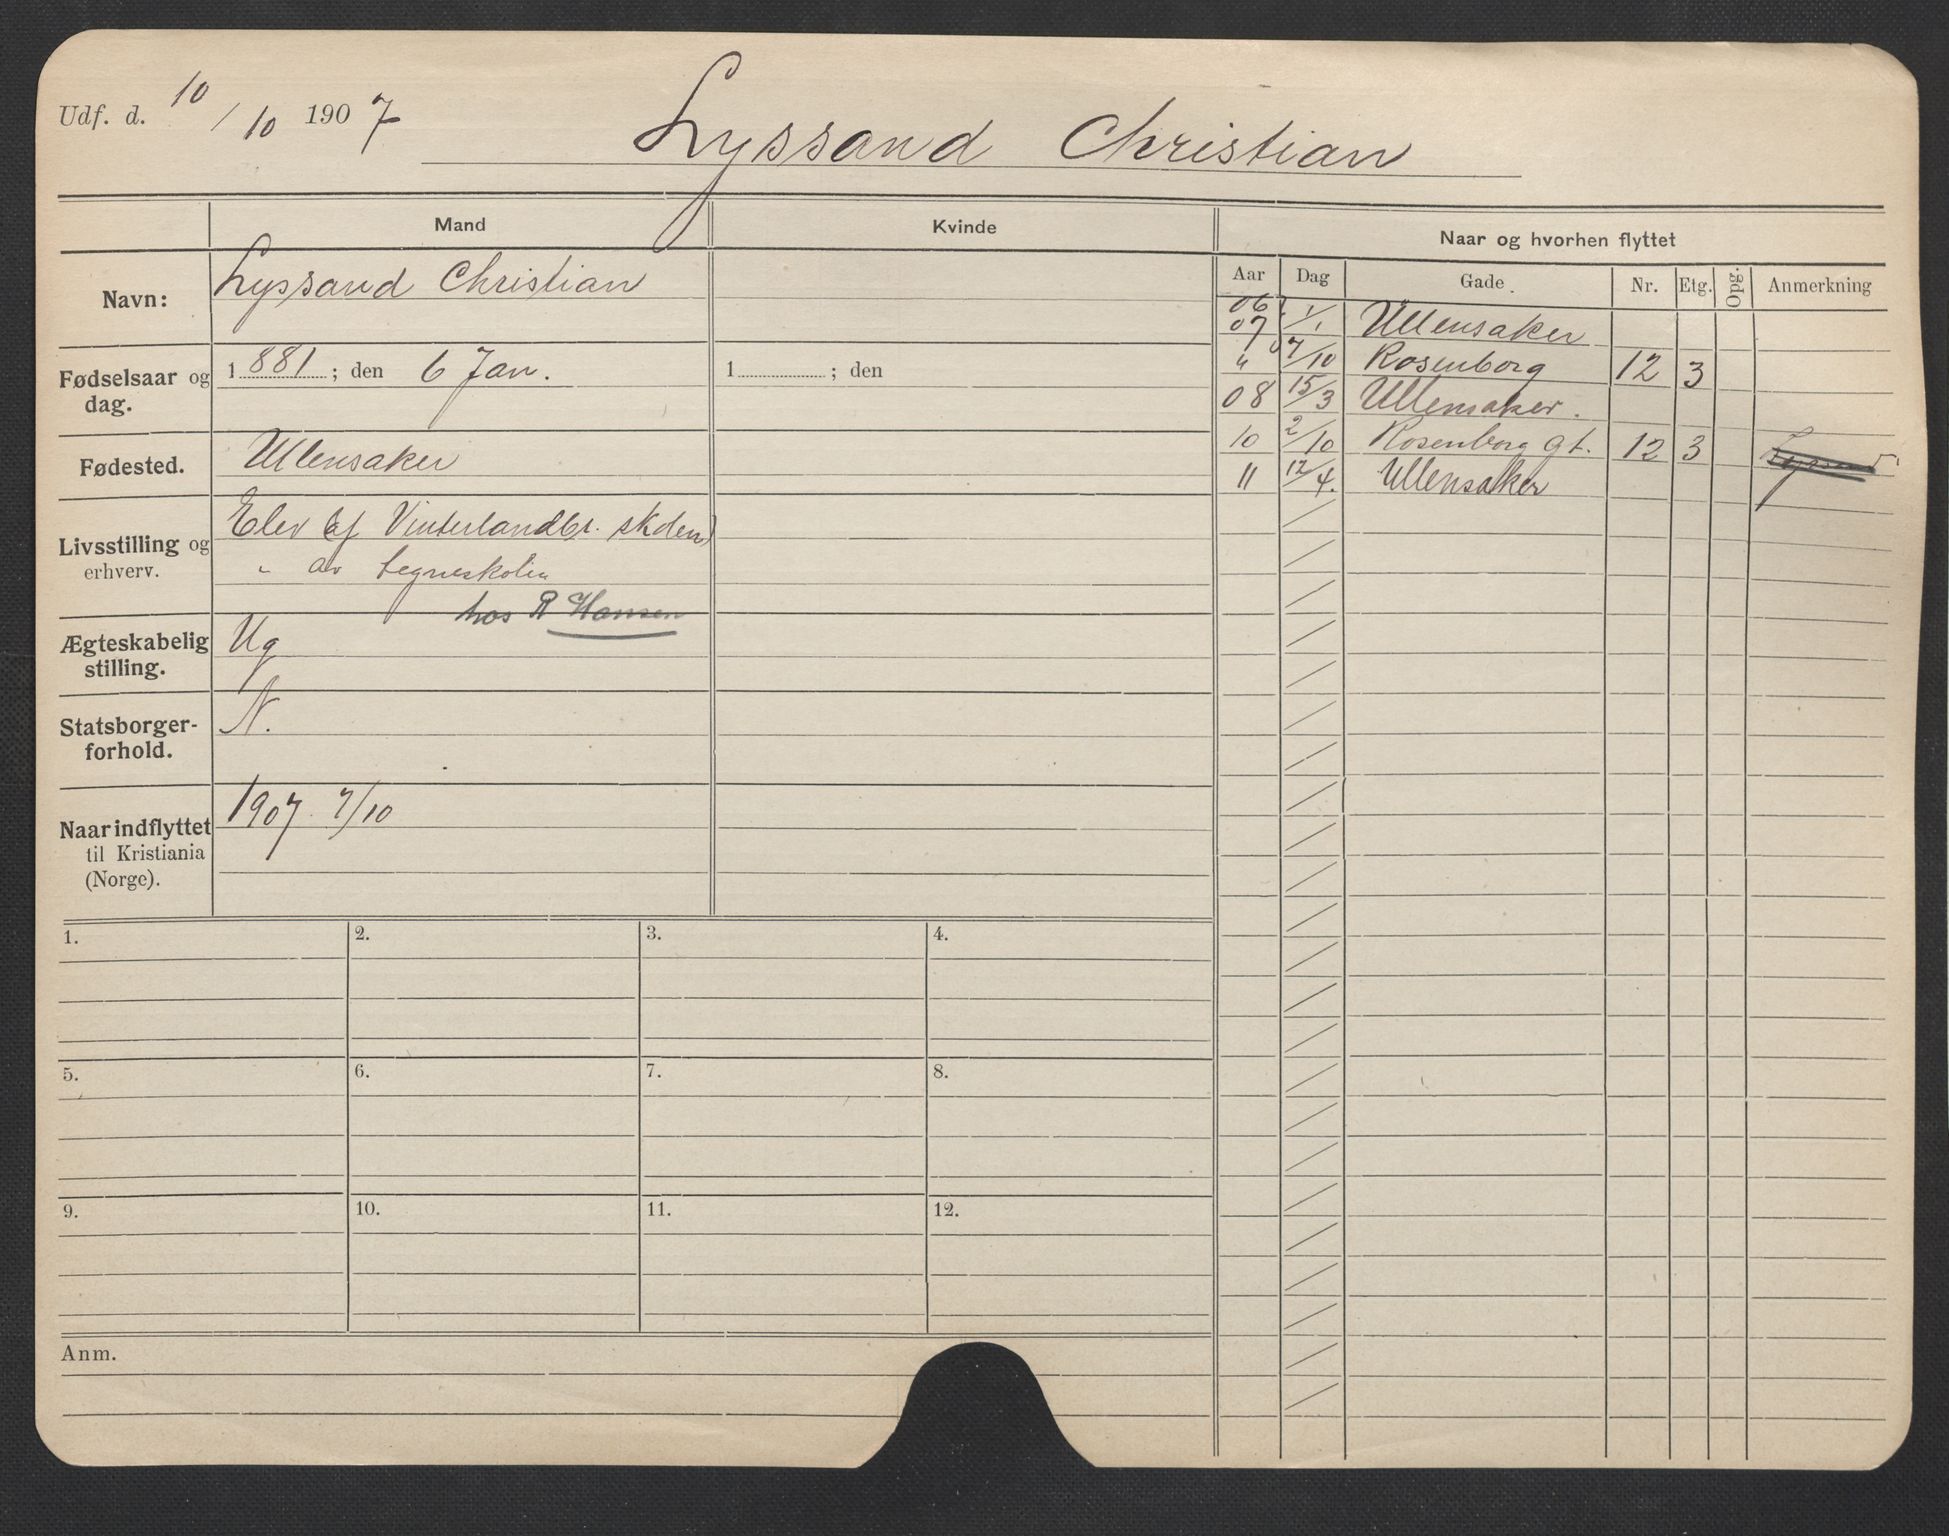 Udf. d. 10/10 1907
Lyssand Christian
Mand
Kvinde
Naar og hvorhen flyttet
Navn: Lyssand Christian
Fødselsaar og dag. 1881; den 6 Jan.
1 ; den
Fødested. Ullensaker
Livsstilling og erhverv. Elev (af Vinterlandbr. skolen)
" av tegneskolen
hos R Hansen
Ægteskabelig stilling. Ug
Statsborgerforhold. N.
Naar indflyttet til Kristiania (Norge). 1907. 7/10
Aar Dag Gade. Nr. Etg. Opg. Anmerkning
06
07 1/1 Ullensaker
" 7/10 Rosenborg 12 3
08 15/3 Ullensaker.
10 2/10 Rosenborg gt. 12 3
11 12/4. Ullensaker
1. 2. 3. 4.
5. 6. 7. 8.
9. 10. 11. 12.
Anm.